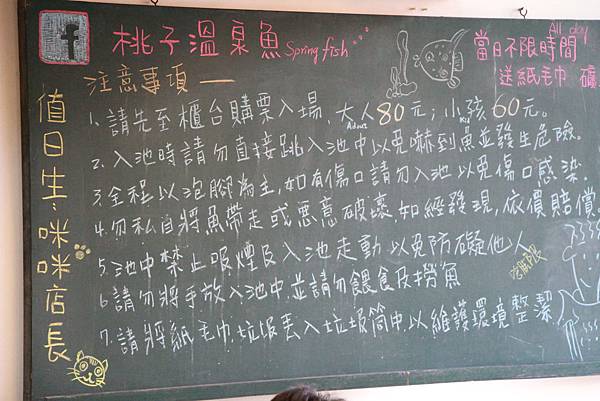 f 桃子溫泉魚 Spring fish
All day
當日不限時間
送紙毛巾 礦
注意事項
1. 請先至櫃台購票入場,大人80元;小孩60元。
Adult Kid
2. 入池時請勿直接跳入池中以免嚇到魚並發生危險。
3. 全程以泡腳為主,如有傷口請勿入池以免傷口感染.
4. 勿私自將魚帶走或惡意破壞.如經發現,依價賠償.
5. 池中禁止吸煙及入池走動以免防礙他人
6. 請勿將手放入池中,並請勿餵食及撈魚
7. 請將紙毛巾.垃圾丟入垃圾筒中以維護環境整潔
值日生:咪咪店長